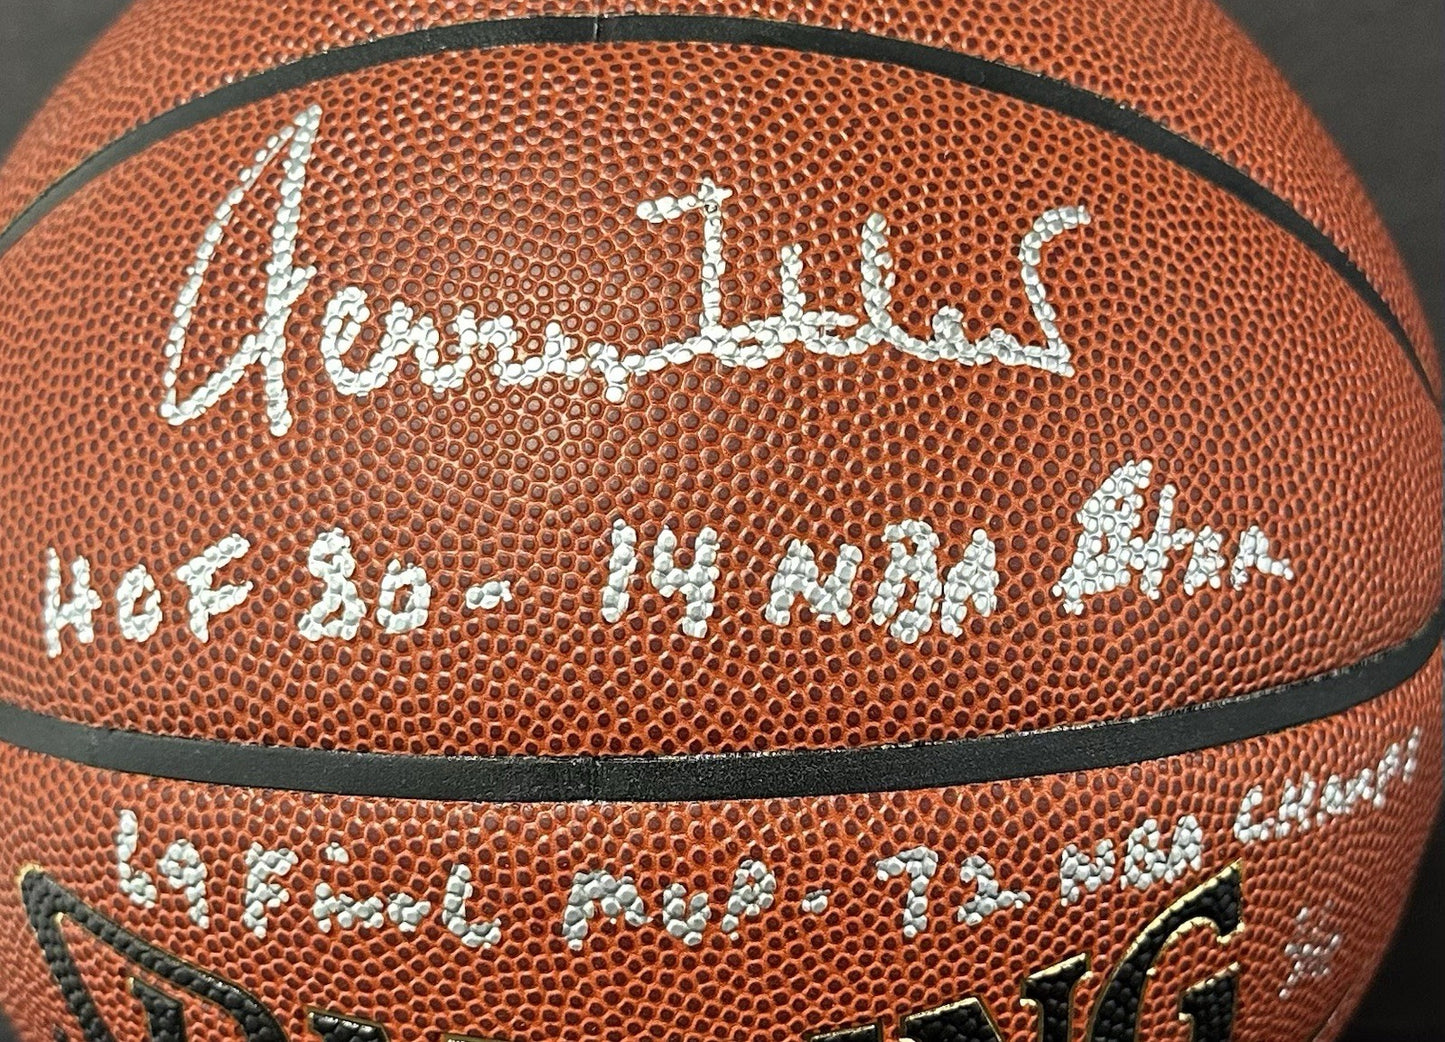 Jerry West
HOF 80 - 14 NBA Star
69 Final MVP - 72 NBA CHAMPS